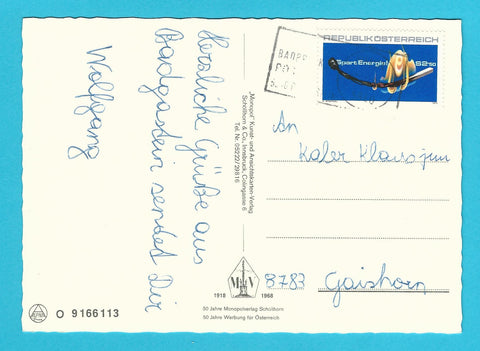 Herzliche Grüße aus
Badgastein sendet Dir
Wolfgang
"Monopol" Kunst- und Ansichtskarten-Verlag
Schöllhorn & Co., Innsbruck, Colingasse 6
Tel. Nr. 05222/26816
REPUBLIK ÖSTERREICH
Spart Energie! S2·50
An
Kaler Klaus jun
8783
Gaishorn
1918 MV 1968
50 Jahre Monopolverlag Schöllhorn
50 Jahre Werbung für Österreich
O 9166113